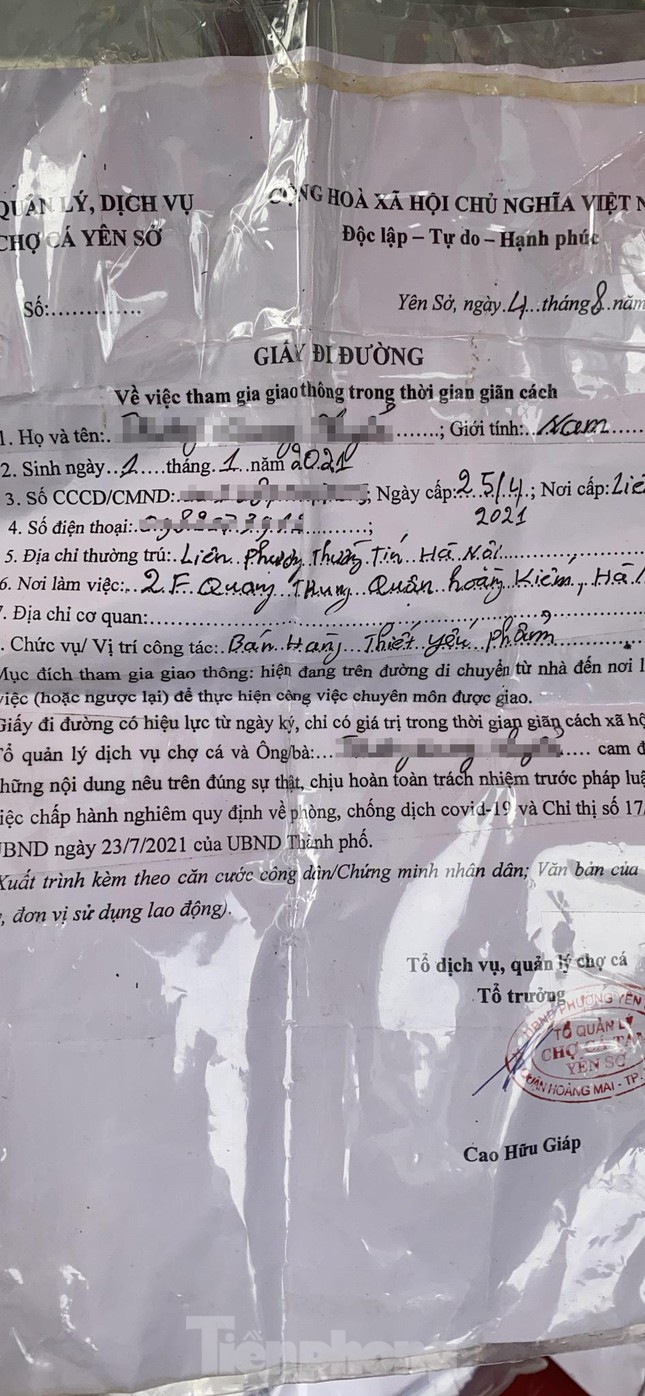 QUẢN LÝ, DỊCH VỤ
CHỢ CÁ YÊN SỞ
CỘNG HOÀ XÃ HỘI CHỦ NGHĨA VIỆT N
Độc lập – Tự do – Hạnh phúc
Số:..............
Yên Sở, ngày.4...tháng 8.năm
GIẤY ĐI ĐƯỜNG
Về việc tham gia giao thông trong thời gian giãn cách
1. Họ và tên:. .......; Giới tính:..Nam......
2. Sinh ngày..1....tháng.1.năm 2021
3. Số CCCD/CMND: ; Ngày cấp:25/4.; Nơi cấp:
2021
4. Số điện thoại: ;
5. Địa chỉ thường trú:.Liên phương Thường Tín Hà Nội
6. Nơi làm việc:..2.F.Quang Trung Quân hoàng Kiếm, Hà
. Địa chỉ cơ quan:
. Chức vụ/ Vị trí công tác:.Bán Hàng Thiết yếu phẩm
Mục đích tham gia giao thông: hiện đang trên đường di chuyển từ nhà đến nơi l
việc (hoặc ngược lại) để thực hiện công việc chuyên môn được giao.
Giấy đi đường có hiệu lực từ ngày ký, chỉ có giá trị trong thời gian giãn cách xã hộ
Tổ quản lý dịch vụ chợ cá và Ông/bà:... .... cam đ
những nội dung nêu trên đúng sự thật, chịu hoàn toàn trách nhiệm trước pháp luậ
iệc chấp hành nghiêm quy định về phòng, chống dịch covid-19 và Chỉ thị số 17/
UBND ngày 23/7/2021 của UBND Thành phố.
Xuất trình kèm theo căn cước công dân/Chứng minh nhân dân; Văn bản của
, đơn vị sử dụng lao động).
Tổ dịch vụ, quản lý chợ cá
Tổ trưởng
UBND PHƯỜNG YÊN
TỔ QUẢN LÝ
CHỢ CÁ
YÊN SỞ
QUẬN HOÀNG MAI - TP.
Cao Hữu Giáp
Tiền phong